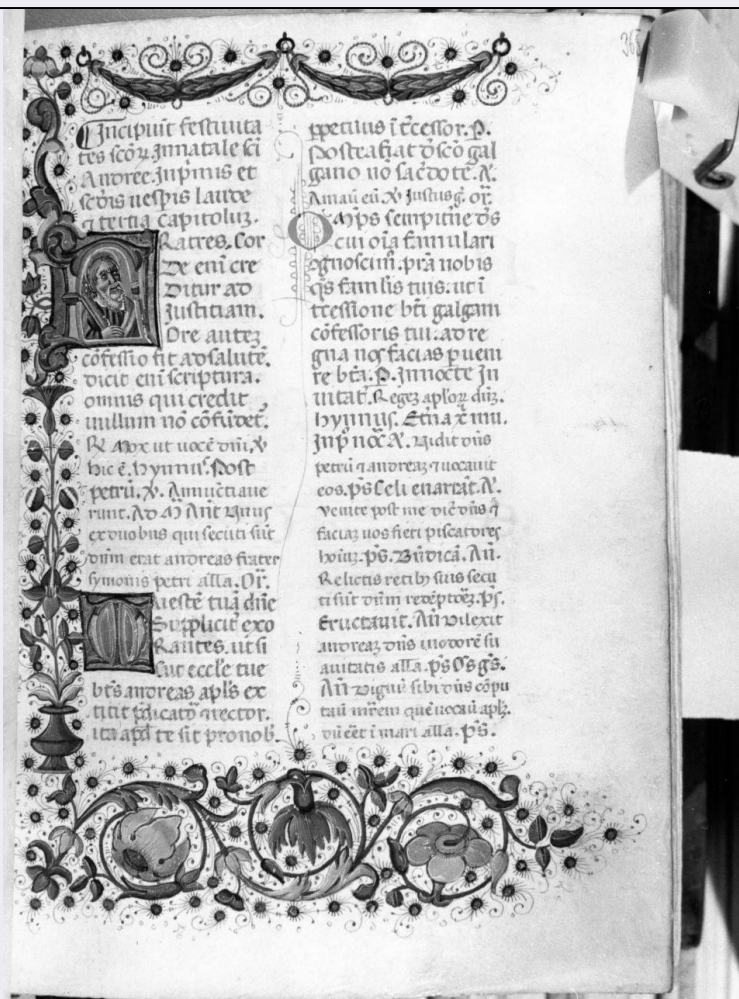 Incipiūt festiuita
tes scōꝝ. In natale sc̄i
Andree. In p̄mis et
sc̄dis uesp̄is laude
⁊ tertia capitoluꝫ.
Fratres. Cor
de eni cre
ditur ad
Justitiam.
Ore auteꝫ
cōfessio fit ad salutē.
dicit eni scriptura.
omnis qui credit
in illum nō cōfūdet̄.
℟ Mox ut uocē dn̄i. ℣
hic ē. hymnus. Post
petrū. ℣. Annūctiaue
runt. Ad M̄ Ant̄ Unus
ex duobus qui secuti sūt
dn̄m erat andreas frater
symonis petri alla. Or̄.
Maiestē tuā dn̄e
Supplicit̄ exo
Rantes. ut si
cut eccl̄e tue
bt̄s andreas apl̄s ex
titit p̄dicatō ⁊ rector.
ita apd̄ te sit pro nob̄.
ppetuus ītc̄essor. P.
Postea fiat d̄ scō gal
gano nō sac̄dote. A.
Amau eū. ℣ Justus ḡ. or̄.
Om̄ps sempitn̄e d̄s
cui oīa famulari
q̄s famlis tuis. ut ī
tcessione bt̄i galgani
cōfessoris tui. ad re
gna nos facias p uem
re bt̄a. P. In nocte In
uitat̄. Regeꝫ apl̄oꝝ dn̄ꝫ.
hymnus. Et̄na x̄ mu.
In p̄ noc̄ A. Uidit dn̄s
petrū ⁊ andreaꝫ ⁊ uocauit
eos. ps̄ Celi enarrāt. A.
Venite post me dic̄ dn̄s
faciaꝫ uos fieri piscatores
hoīuꝫ. ps̄. Bn̄dicā. An̄.
Relictis retibꝫ suis secu
ti sūt dn̄m redēptoꝫ. ps̄.
Eructauit. An̄ Dilexit
andreaꝫ dn̄s in odorē su
auitatis alla. ps̄ Oēs gēs.
An̄ Dignū sibi dn̄s cōpu
tau mr̄em quē uocau apl̄ꝫ.
dū eēt ī mari alla. ps̄.